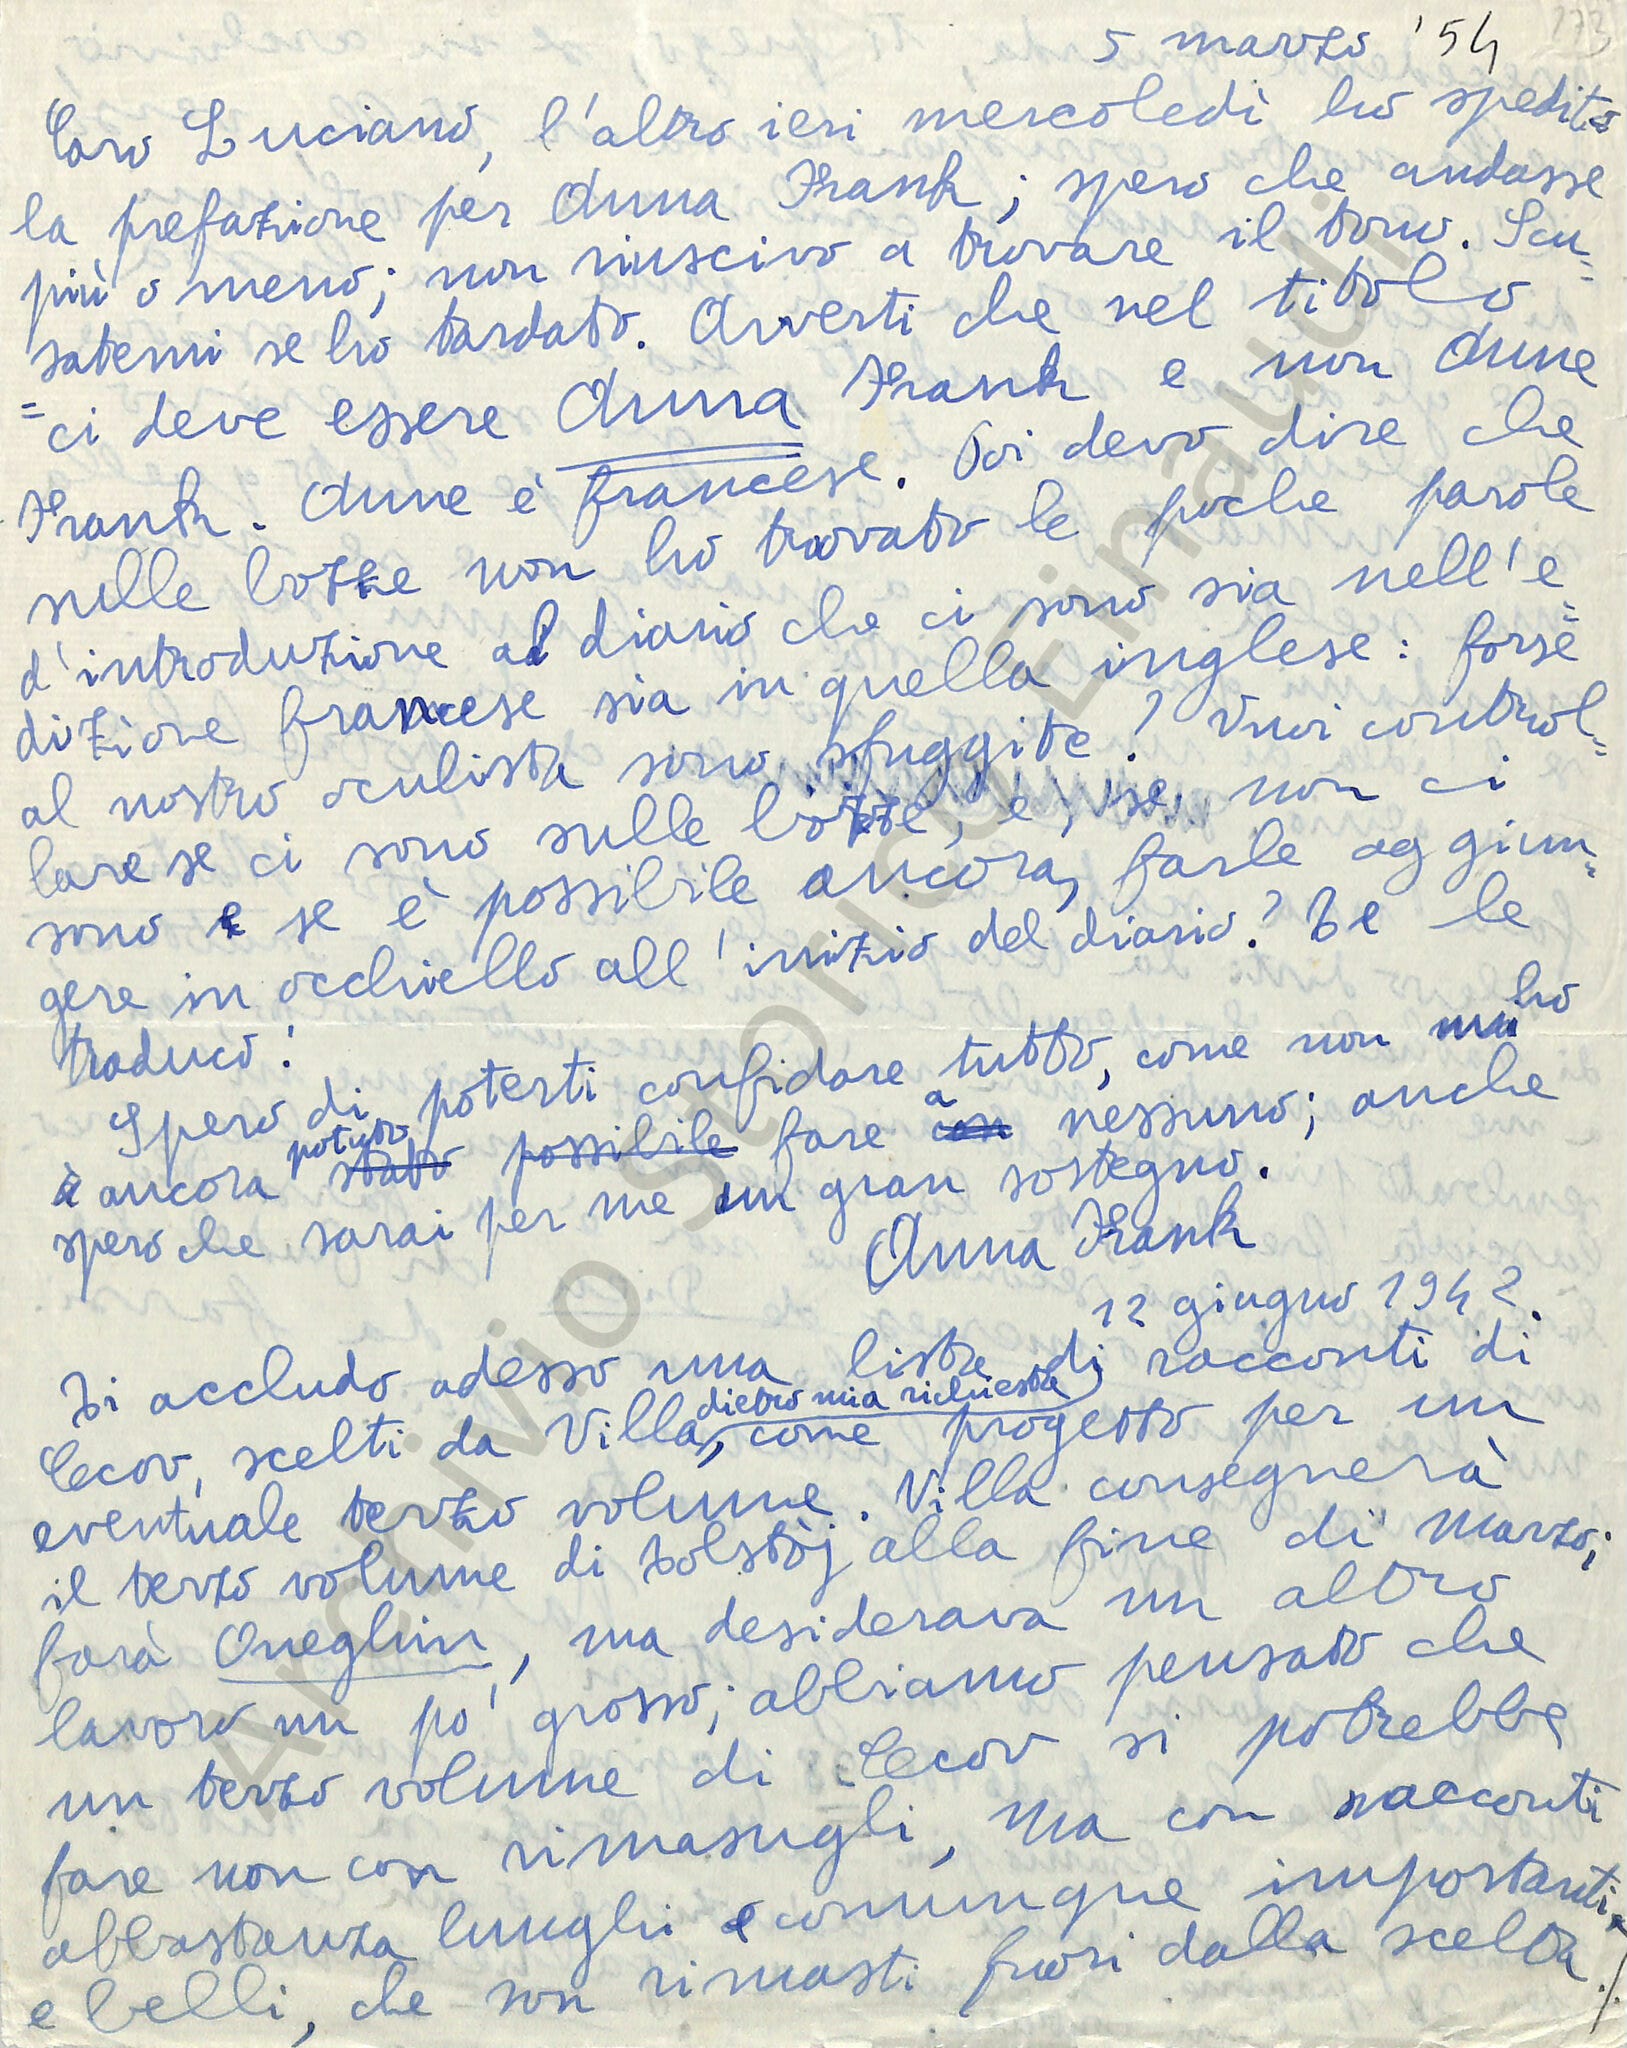 173
5 marzo '54
Caro Luciano, l'altro ieri mercoledì ho spedito
la prefazione per Anna Frank; spero che andasse
più o meno; non riuscivo a trovare il tono. Scu=
satemi se ho tardato. Avverti che nel titolo
=ci deve essere Anna Frank e non Anne
Frank. Anne è francese. Poi devo dire che
sulle bozze non ho trovato le poche parole
d'introduzione al diario che ci sono sia nell'e=
dizione francese sia in quella inglese: forse
al nostro oculista sono sfuggite? Vuoi control=
lare se ci sono sulle bozze, e, se non ci
sono e se è possibile ancora, farle aggiun=
gere in occhiello all'inizio del diario? Te le
traduco:
Spero di poterti confidare tutto, come non ho
ancora potuto stato possibile fare a con nessuno; anche
spero che sarai per me un gran sostegno.
Anna Frank
12 giugno 1942.
Ti accludo adesso una lista di racconti di
Cecov, scelti da Villa, dietro mia richiesta, come progetto per un
eventuale terzo volume. Villa consegnerà
il terzo volume di Tolstòj alla fine di marzo;
farà Oneghin, ma desiderava un altro
lavoro un po' grosso; abbiamo pensato che
un terzo volume di Cecov si potrebbe
fare non con rimasugli, ma con racconti
abbastanza lunghi e comunque importanti
e belli, che son rimasti fuori dalla scelta ./.
Archivio Storico Einaudi